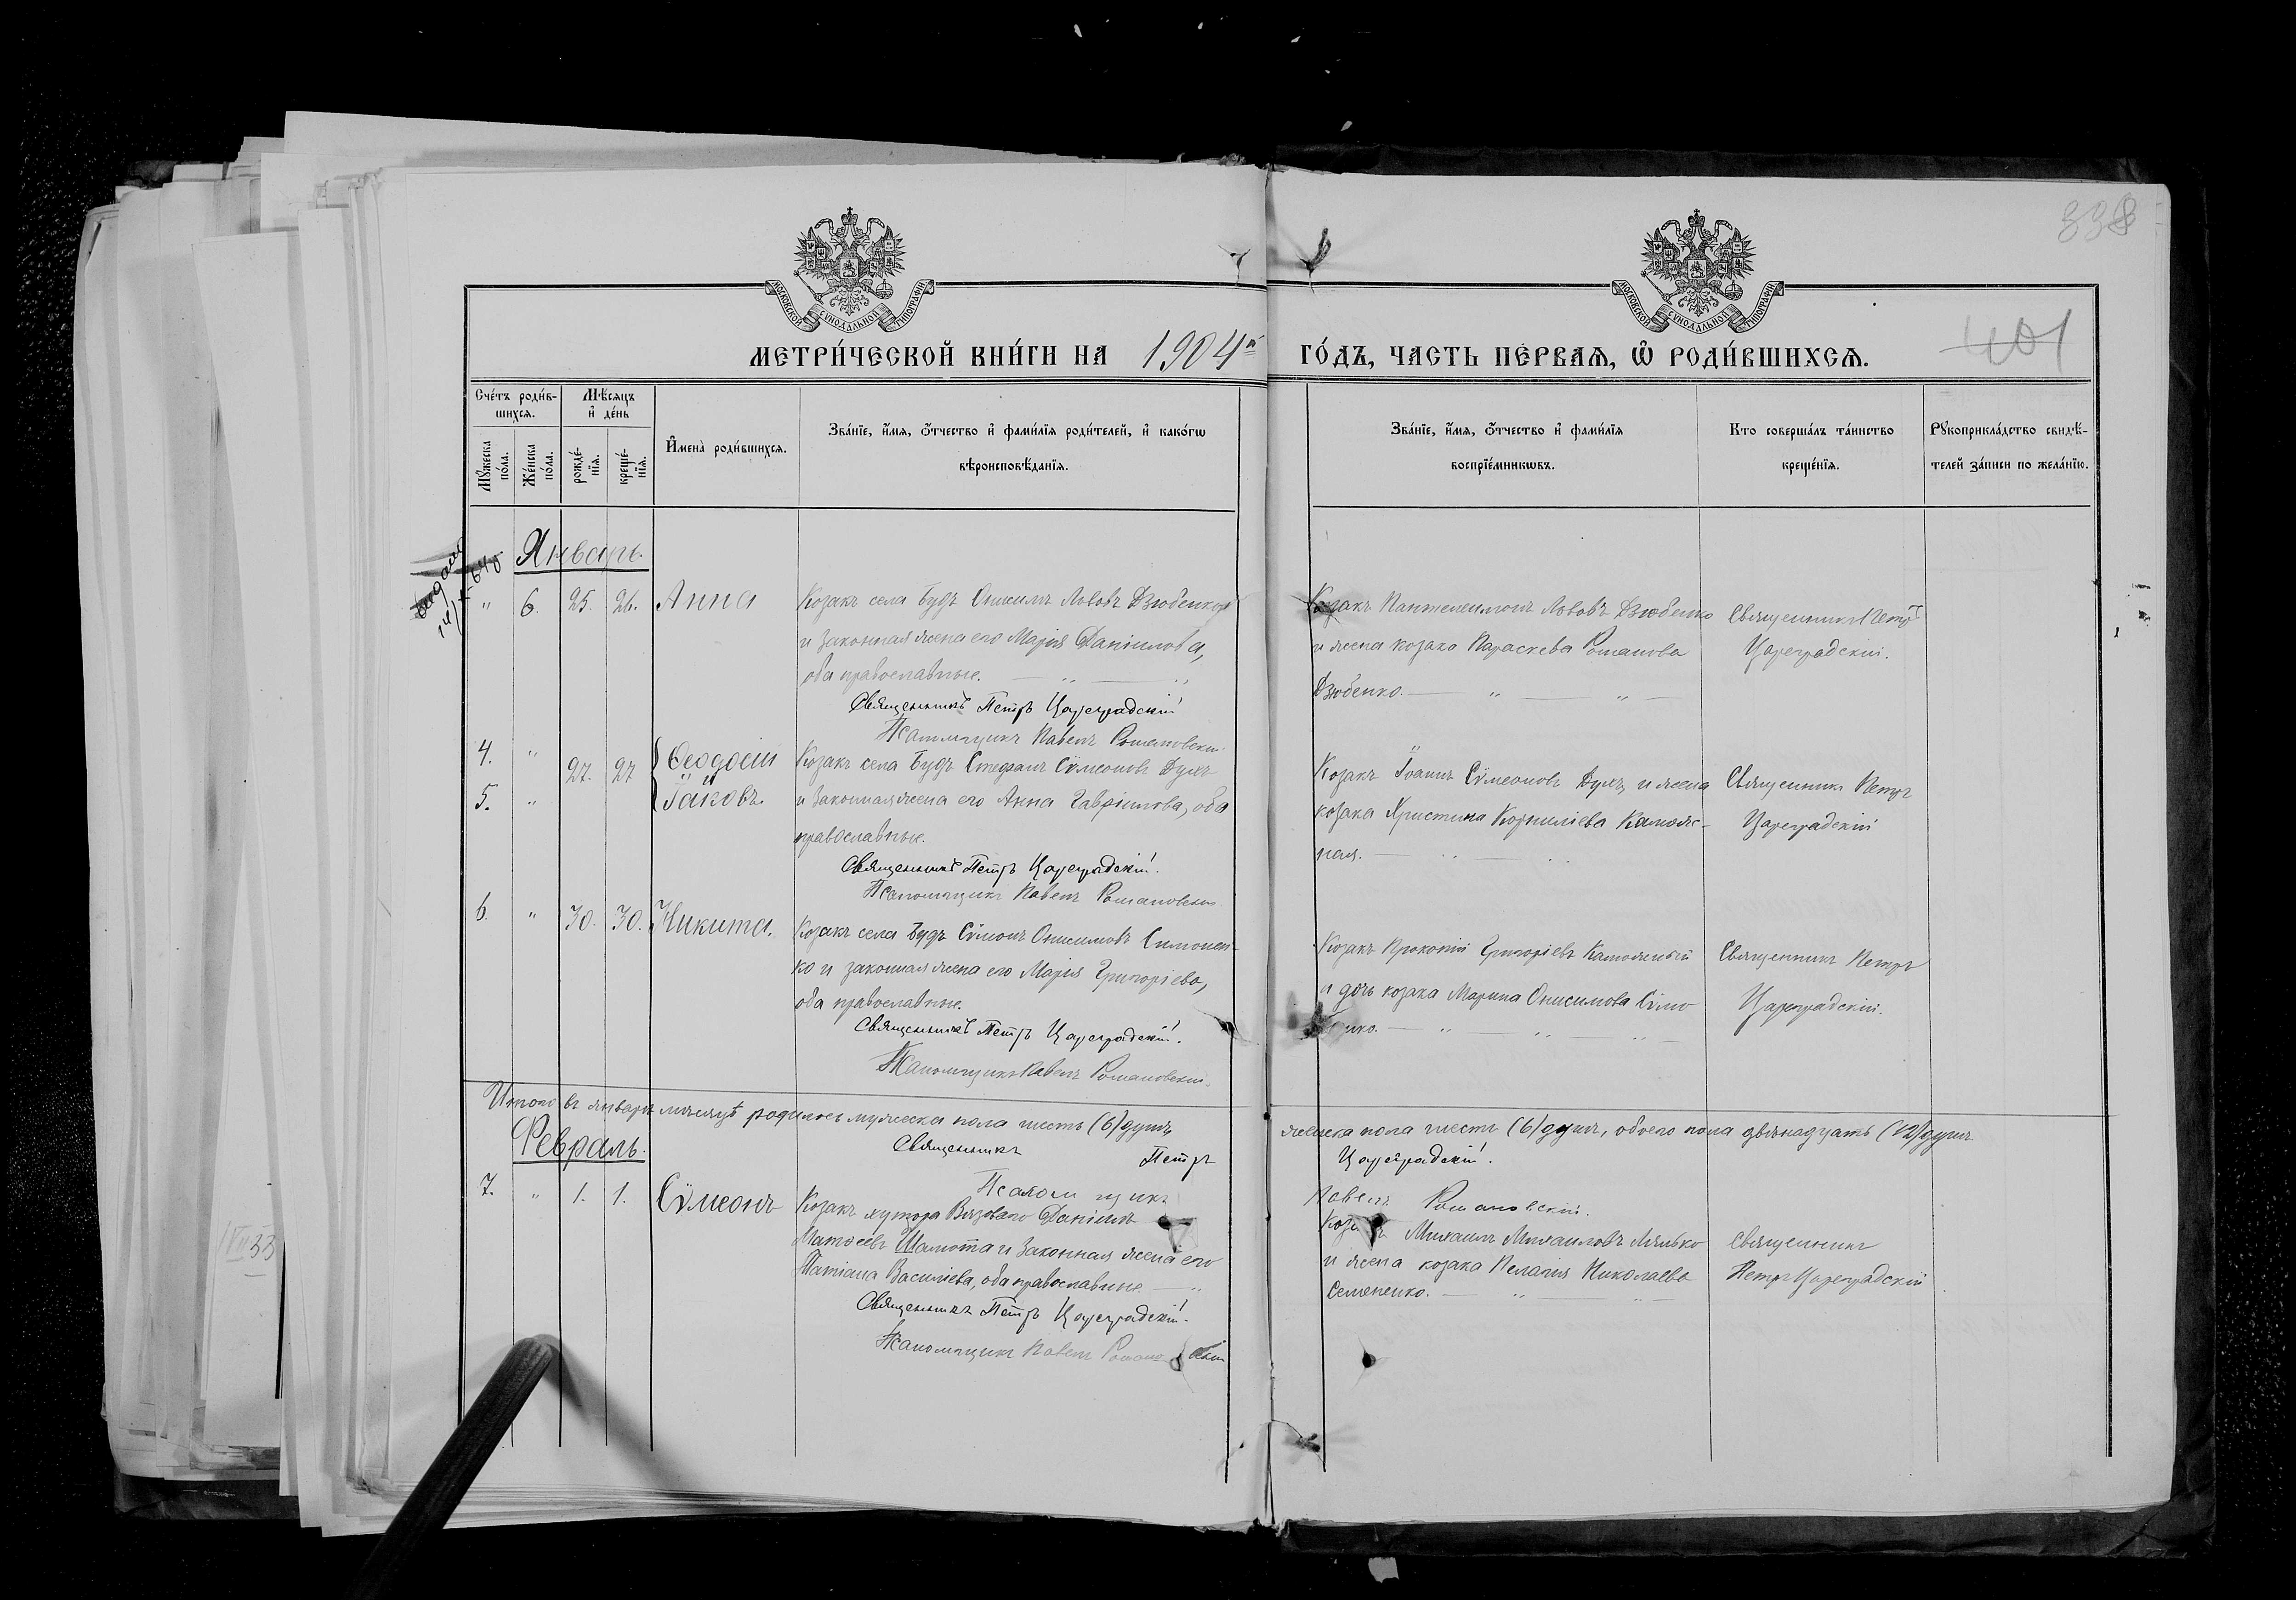 338
МОСКОВСКОЙ СѴНОДАЛЬНОЙ ТИПОГРАФІИ
МОСКОВСКОЙ СѴНОДАЛЬНОЙ ТИПОГРАФІИ
МЕТРИ́ЧЕСКОЙ КНИ́ГИ НА 1904й ГО́ДЪ, ЧАСТЬ ПЕ́РВАѦ, Ѽ РОДИ́ВШИХСѦ.
401
Сче́тъ роди́в-
шихсѧ.
Мꙋ́жеска
по́ла.
Же́нска
по́ла.
Мѣ́сѧцъ
и҆ де́нь
рожде́-
нїѧ.
креще́-
нїѧ.
И҆мена̀ роди́вшихсѧ.
Зва́нїе, и҆́мѧ, ѻ҆́тчество и҆ фами́лїѧ роди́телей, и҆ како́гѡ
вѣроисповѣ́данїѧ.
Зва́нїе, и҆́мѧ, ѻ҆́тчество и҆ фами́лїѧ
воспрїе́мникѡвъ.
Кто соверша́лъ та́инство
креще́нїѧ.
Рꙋкоприкла́дство свидѣ́-
телей за́писи по жела́нїю.
Январь.
" 6. 25. 26. Анна
Козакъ села Будъ Онисимъ Львовъ Дзюбенко
и законная жена его Марія Даніилова,
оба православные. — " — "
Священникъ Петръ Цареградскій
Псаломщикъ Павелъ Романовскій
Козакъ Пантелеимонъ Львовъ Дзюбенко
и жена козака Параскева Романова
Дзюбенко. — " — " —
Священникъ Петръ
Цареградскій.
4. "
5. "
27. 27
Ѳеодосій
Іаковъ.
Козакъ села Будъ Стефанъ Сѵмеоновъ Духъ
и законная жена его Анна Гавріилова, оба
православные.
Священникъ Петръ Цареградскій.
Псаломщикъ Павелъ Романовскій
Козакъ Іоаннъ Сѵмеоновъ Духъ и жена
козака Христина Корниліева Камояс-
ная. — " —
Священникъ Петръ
Цареградскій
6. " 30. 30. Никита.
Козакъ села Будъ Сѵмонъ Онисимовъ Симонен-
ко и законная жена его Марія Григоріева,
оба православные.
Священникъ Петръ Цареградскій.
Псаломщикъ Павелъ Романовскій.
Козакъ Прокопій Григоріевъ
и дочь козака Марина Онисимова Сѵмо
ненко. — " — " — " —
Священникъ Петръ
Цареградскій.
Итого въ январѣ мѣсяцѣ родилось мужеска пола шесть (6) душъ, женска пола шесть (6) душъ, обоего пола двѣнадцать (12) душъ
Священникъ Петръ Цареградскій.
Псаломщикъ Павелъ Романовскій.
Февраль.
7. " 1. 1. Сѵмеонъ
Козакъ хутора Вязоваго Даніилъ
Матѳеевъ Шамота и законная жена его
Татіана Василіева, оба православные — "
Священникъ Петръ Цареградскій.
Псаломщикъ Павелъ Романовскій
Козакъ Михаилъ Михаиловъ
и жена козака Пелагія Николаева
Семененко. — " — " —
Священникъ
Петръ Цареградскій
VII 33